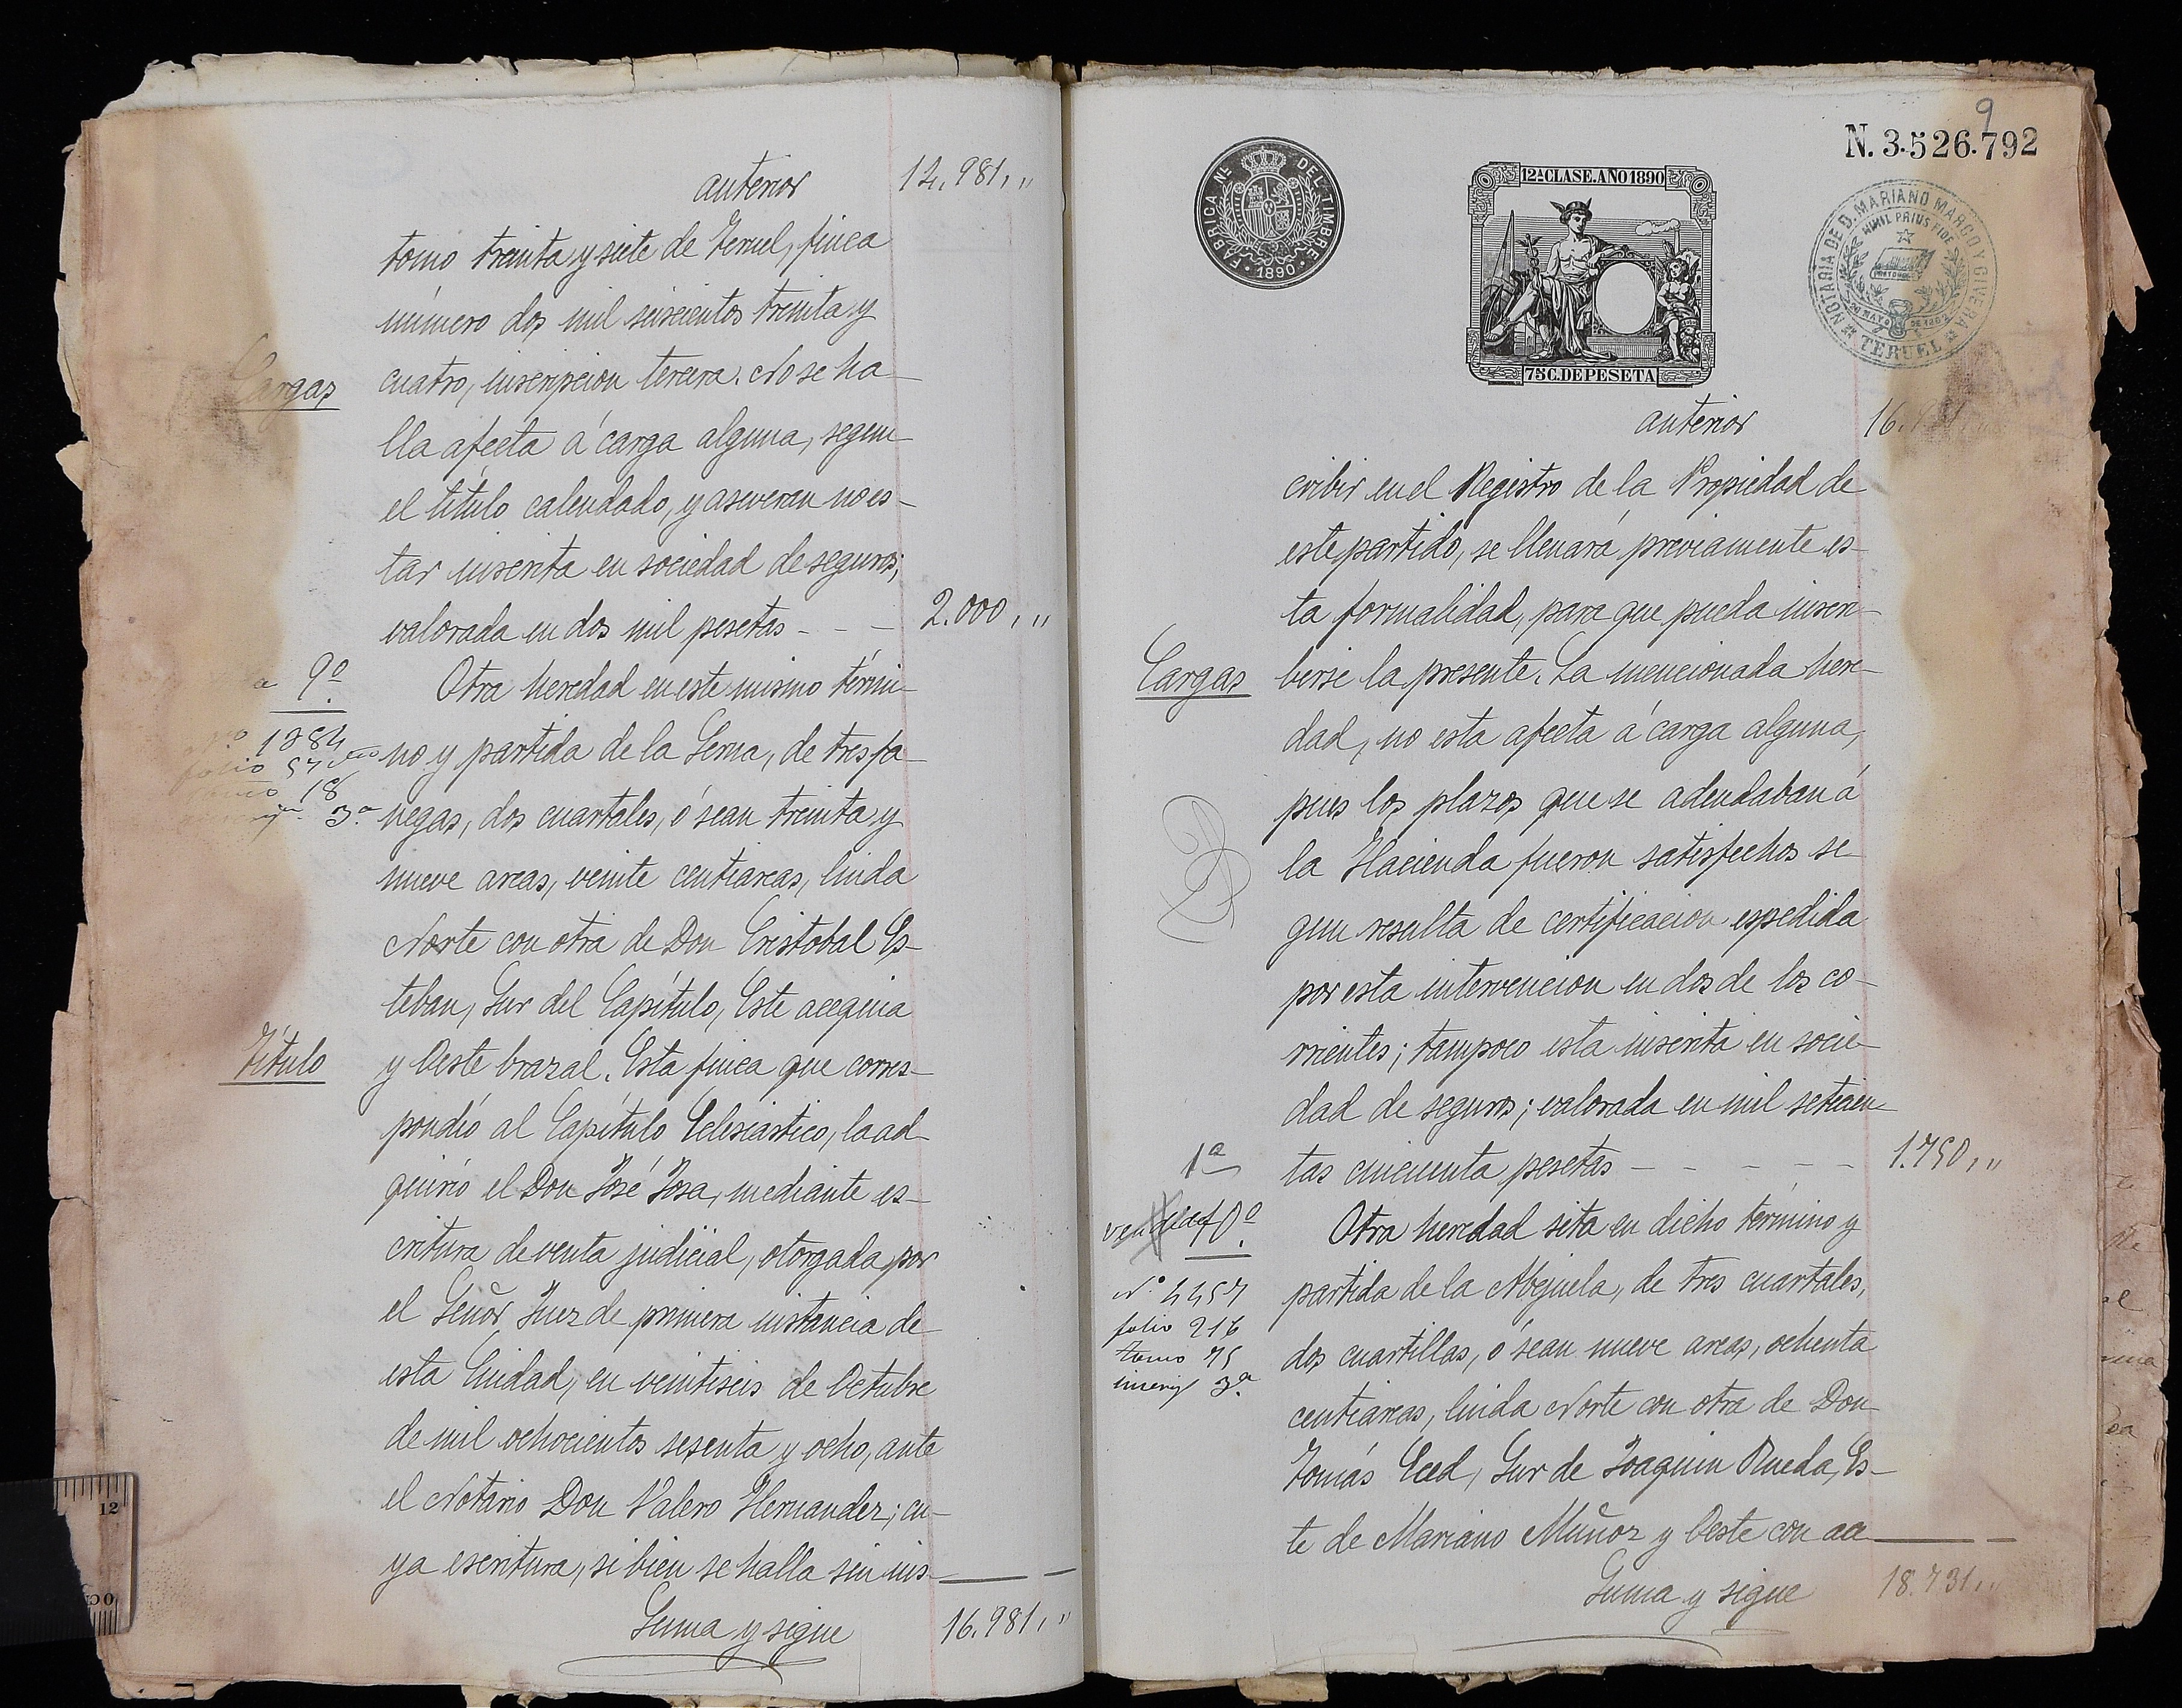 anterior 14.981,,
tomo treinta y siete de Teruel, finca
número dos mil seiscientos treinta y
Cargas cuatro, inscripcion tercera. No se ha-
lla afecta á carga alguna, segun
el título calendado, y aseveran no es-
tar inscrita en sociedad de seguros;
valorada en dos mil pesetas - - - 2.000,,
9º Otra heredad en este mismo térmi-
Nº 1384
no y partida de la Serna, de tres fa-
folio 57 vto
tomo 18
3ª
negas, dos cuartales, ó sean treinta y
nueve areas, veinte centiareas, linda
Norte con otra de Don Cristobal Es-
teban, Sur del Capítulo, Este acequia
Título y Oeste brazal. Esta finca que corres-
pondió al Capítulo Eclesiástico, la ad-
quirió el Don José Josa, mediante es-
critura de venta judicial, otorgada por
el Señor Juez de primera instancia de
esta Ciudad, en veintiseis de Octubre
de mil ochocientos sesenta y ocho, ante
el Notario Don Valero Hernandez; cu-
ya escritura, si bien se halla sin ins-
Suma y sigue 16.981,,
9
N. 3.526.792
FABRICA Nˡ DEL TIMBRE
1890
12ª CLASE. AÑO 1890
75 C. DE PESETA
NOTARIA DE D. MARIANO MARCO Y GIVERIA
NIHIL PRIUS FIDE
TERUEL
anterior 16.
cribir en el Registro de la Propiedad de
este partido, se llenará previamente es-
ta formalidad, para que pueda inscri-
Cargas birse la presente. La mencionada here-
dad, no esta afecta á carga alguna,
pues los plazos que se adeudaban á
la Hacienda fueron satisfechos se-
gun resulta de certificacion espedida
por esta intervencion en dos de los co-
rrientes; tampoco esta inscrita en socie-
dad de seguros; valorada en mil setecien-
1ª
tas cincuenta pesetas - - - - - 1.750,,
10º Otra heredad sita en dicho término y
Nº 4457
partida de la Abejuela, de tres cuartales,
folio 216
tomo 75
dos cuartillas, ó sean nueve areas, ochenta
3ª
centiareas, linda Norte con otra de Don
Tomás Eced, Sur de Joaquin Rueda, Es-
te de Mariano Muñoz y Oeste con ace-
Suma y sigue 18.731,,